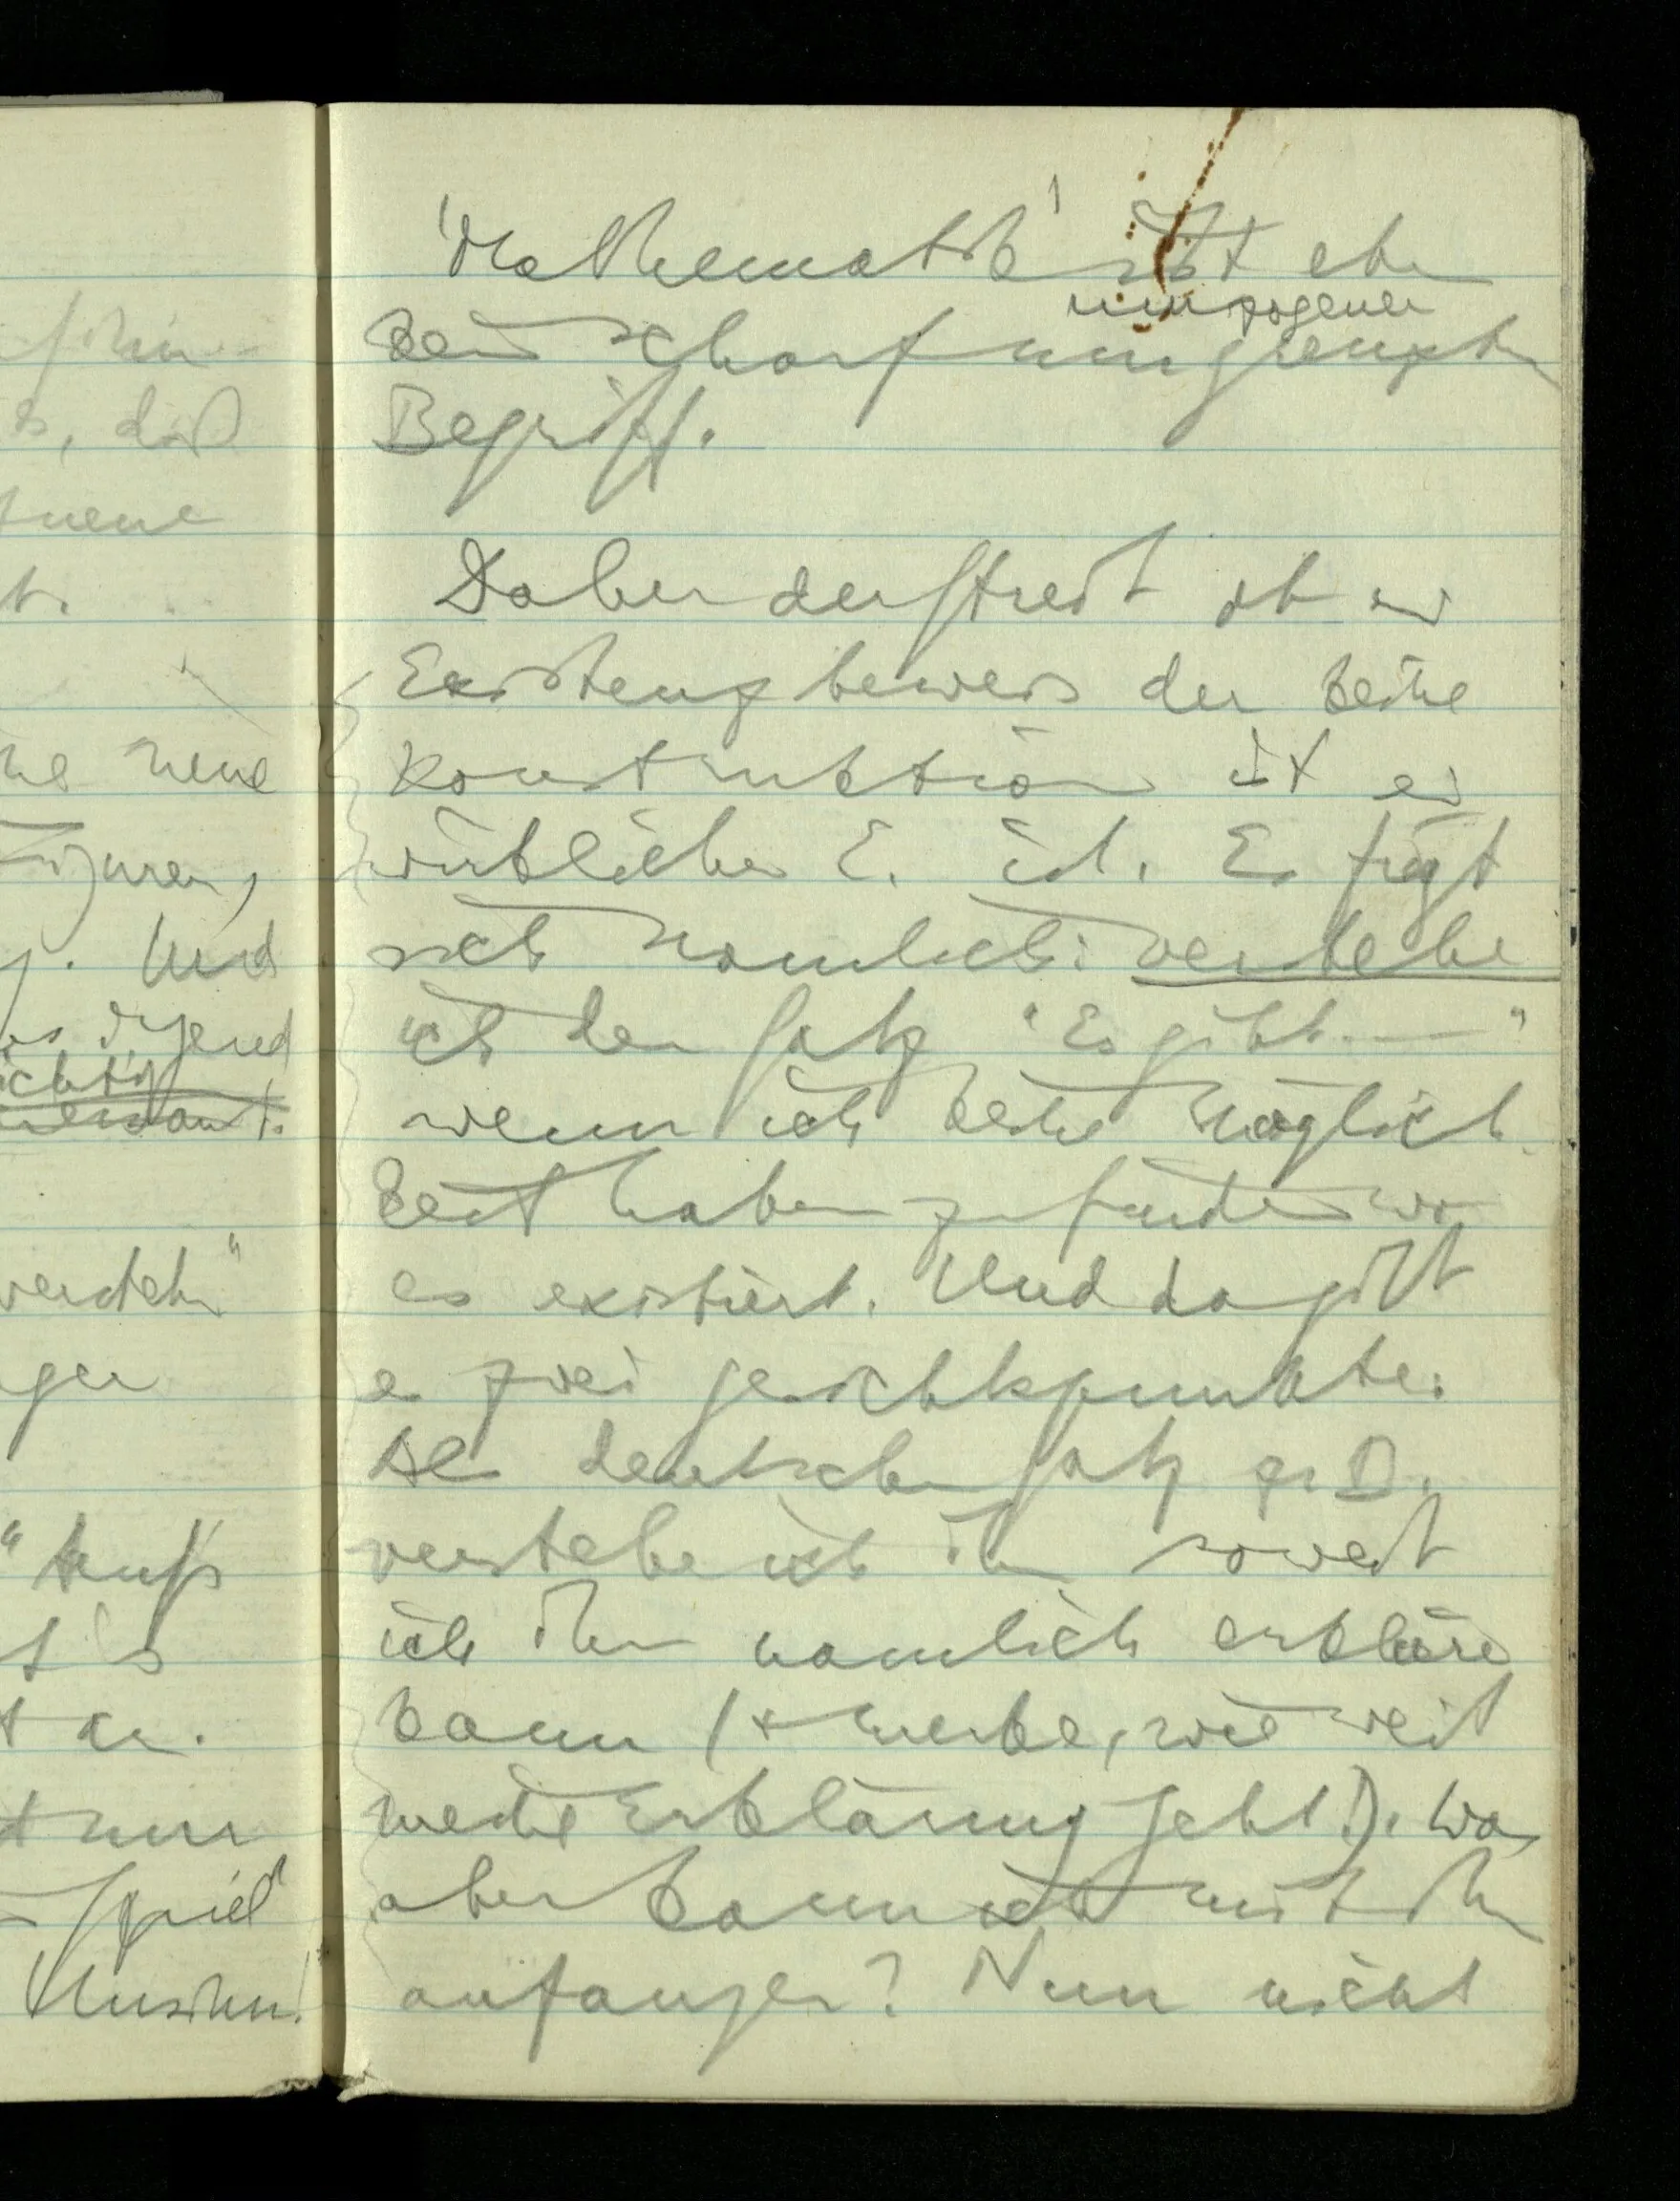 f ihm
es, daß
meine
t.
ne neue
Figuren,
g. Und
es irgend
ichtig
verstehn"
gen
" muß
t
t an.
t nur
Spiel"
Unsinn!
'Mathematik' ist eben
umzogener
kein scharf umgrenzter
Begriff.
Daher der Streit ob ein
Existenzbeweis der keine
Konstruktion ist ein
wirklicher E. ist. Es frägt
sich namlich: verstehe
ich den Satz "Es gibt ..."
wenn ich keine Möglich
keit habe zu finden wo
es existiert. Und da gibt
es zwei Gesichtspunkte:
Als deutschen Satz z.B.
verstehe ich ihn soweit
ich ihn namlich erkläre
kann (& merke, wie weit
meine Erklärung geht!). Was
aber kann ich mit ihm
anfangen? Nun nicht